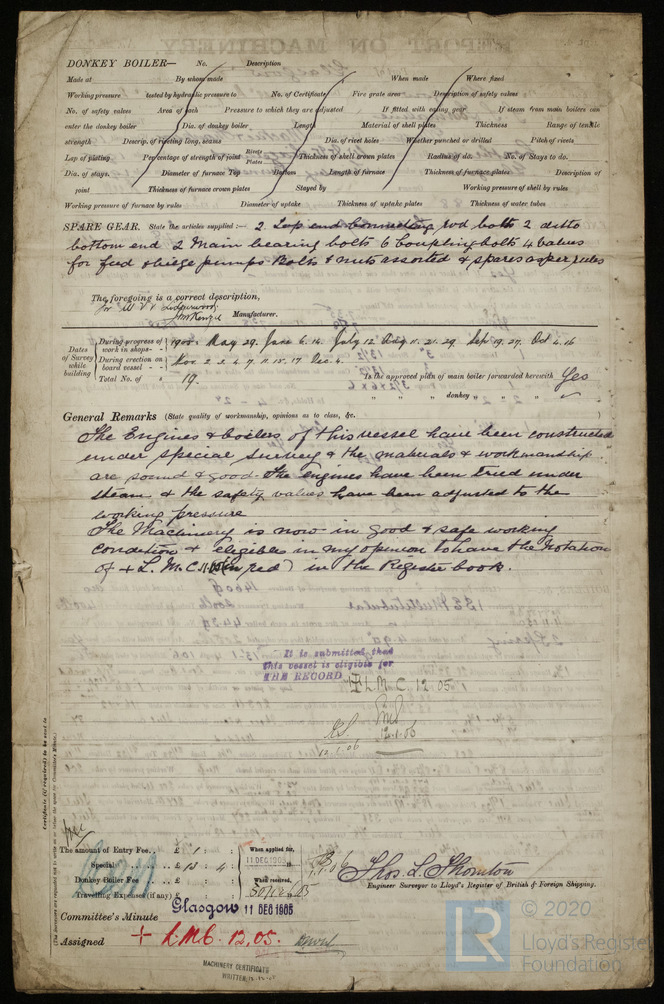 DONKEY BOILER— No. Description
Made at By whom made When made Where fixed
Working pressure tested by hydraulic pressure to No. of Certificate Fire grate area Description of safety valves
No. of safety valves Area of each Pressure to which they are adjusted If fitted with easing gear If steam from main boilers can
enter the donkey boiler Dia. of donkey boiler Length Material of shell plates Thickness Range of tensile
strength Descrip. of riveting long. seams Dia. of rivet holes Whether punched or drilled Pitch of rivets
Lap of plating Percentage of strength of joint Rivets Plates Thickness of shell crown plates Radius of do. No. of Stays to do.
Dia. of stays. Diameter of furnace Top Bottom Length of furnace Thickness of furnace plates Description of
joint Thickness of furnace crown plates Stayed by Working pressure of shell by rules
Working pressure of furnace by rules Diameter of uptake Thickness of uptake plates Thickness of water tubes
SPARE GEAR. State the articles supplied:— 2 Top end connecting rod bolts 2 ditto
bottom end 2 Main bearing bolts 6 Coupling bolts 4 Valves
for feed & bilge pumps Bolts & nuts assorted & spares as per rules
The foregoing is a correct description,
Manufacturer.
Dates of Survey while building
During progress of work in shops - - 1905. May 29. June 6. 14. July 12. Aug 11. 21. 29. Sep 19. 27. Oct 4. 16
During erection on board vessel - - - Nov 2. 3. 4. 7. 11. 15. 17. Dec 4.
Total No. of 19. Is the approved plan of main boiler forwarded herewith Yes
" " " donkey " " "
General Remarks (State quality of workmanship, opinions as to class, &c.
The Engines & boilers of this vessel have been constructed
under special survey & the materials & workmanship
are sound & good. The engines have been tried under
steam & the safety valves have been adjusted to the
working pressure
The Machinery is now in good & safe working
condition & eligible in my opinion to have the Notation
of + L.M.C. (in red) in the Register book.
It is submitted that
this vessel is eligible for
THE RECORD + L.M.C. 12.05
12.1.06
12.1.06
Certificate (if required) to be sent to
The amount of Entry Fee . . £ 1 : : When applied for,
Special . . . . £ 13 : 4 : 11 DEC 1905
Donkey Boiler Fee . . . £ : : When received,
Travelling Expenses (if any) £ : :
Thos. L. Thornton
Engineer Surveyor to Lloyd's Register of British & Foreign Shipping.
Committee's Minute Glasgow 11 DEC 1905
Assigned + L.M.C. 12.05.
MACHINERY CERTIFICATE
WRITTEN
© 2020
LR Lloyd's Register
Foundation